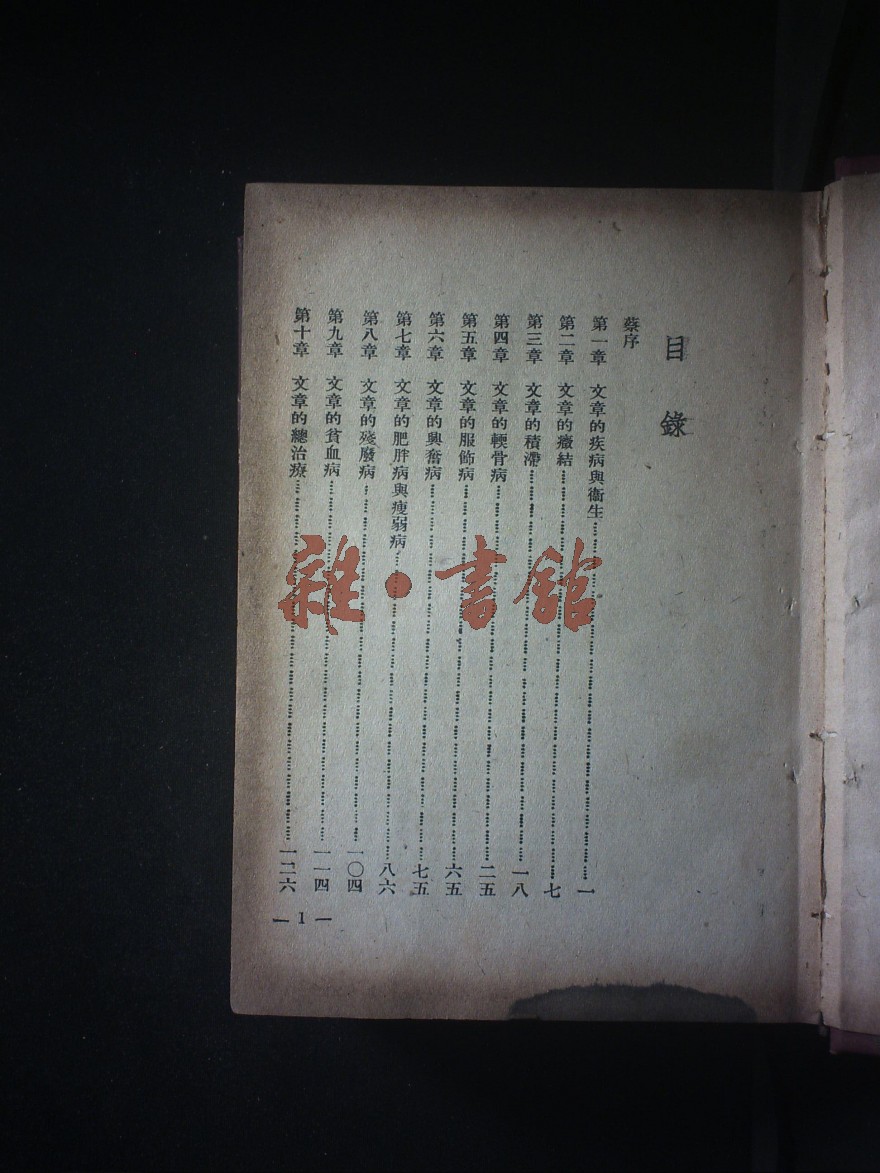 目錄
蔡序
第一章 文章的疾病與衞生……一
第二章 文章的癥結……七
第三章 文章的積滯……一八
第四章 文章的輭骨病……二五
第五章 文章的服飾病……六五
第六章 文章的興奮病……七五
第七章 文章的肥胖病與瘦弱病……八六
第八章 文章的殘廢病……一〇四
第九章 文章的貧血病……一一四
第十章 文章的總治療……一二六
— 1 —
雜·書館